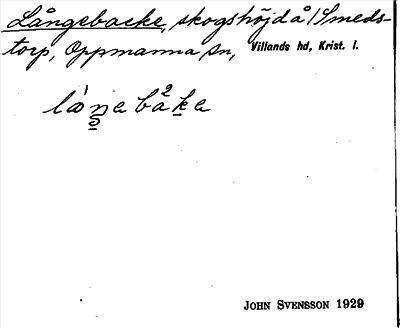 Långebacke, skogshöjd å 1 Smeds-
torp, Oppmanna sn, Villands hd, Krist. l.
JOHN SVENSSON 1929